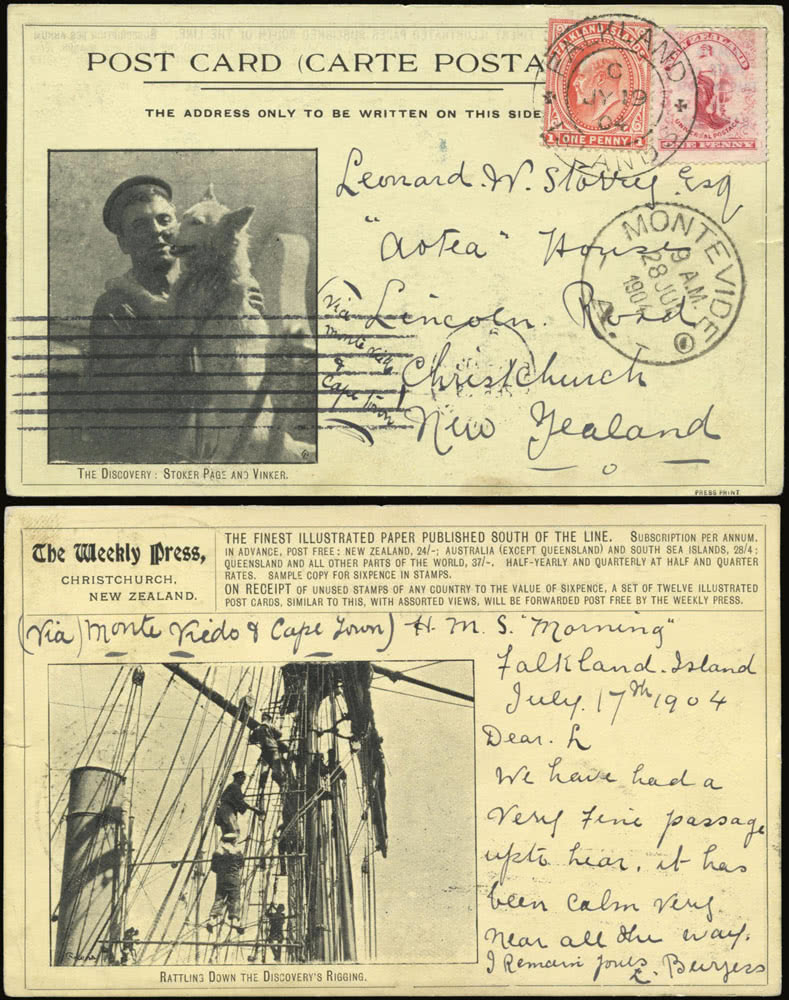 POST CARD (CARTE POSTA
THE ADDRESS ONLY TO BE WRITTEN ON THIS SIDE
FALKLAND ISLANDS
ONE PENNY
NEW ZEALAND
UNIVERSAL POSTAGE
ONE PENNY
FALKLAND ISLANDS
C
JY 19
04
Leonard. W. Storrey. Esq
"Aotea" House
Lincoln. Road
Christchurch
New Zealand
(via
Monte Viedo
&
Cape Town)
MONTEVIDEO
9 A.M.
28 JUL
1904
THE DISCOVERY: STOKER PAGE AND VINKER.
PRESS PRINT
The Weekly Press,
CHRISTCHURCH,
NEW ZEALAND.
THE FINEST ILLUSTRATED PAPER PUBLISHED SOUTH OF THE LINE. SUBSCRIPTION PER ANNUM.
IN ADVANCE, POST FREE: NEW ZEALAND, 24/-; AUSTRALIA (EXCEPT QUEENSLAND) AND SOUTH SEA ISLANDS, 28/4;
QUEENSLAND AND ALL OTHER PARTS OF THE WORLD, 37/-. HALF-YEARLY AND QUARTERLY AT HALF AND QUARTER
RATES. SAMPLE COPY FOR SIXPENCE IN STAMPS.
ON RECEIPT OF UNUSED STAMPS OF ANY COUNTRY TO THE VALUE OF SIXPENCE, A SET OF TWELVE ILLUSTRATED
POST CARDS, SIMILAR TO THIS, WITH ASSORTED VIEWS, WILL BE FORWARDED POST FREE BY THE WEEKLY PRESS.
(Via) Monte Viedo & Cape Town) H. M. S. "Morning"
Falkland. Island
July. 17th 1904
Dear. L
We have had a
very fine passage
upto hear, it has
been calm very
near all the way.
I Remain yours
L. Burgess
RATTLING DOWN THE DISCOVERY'S RIGGING.